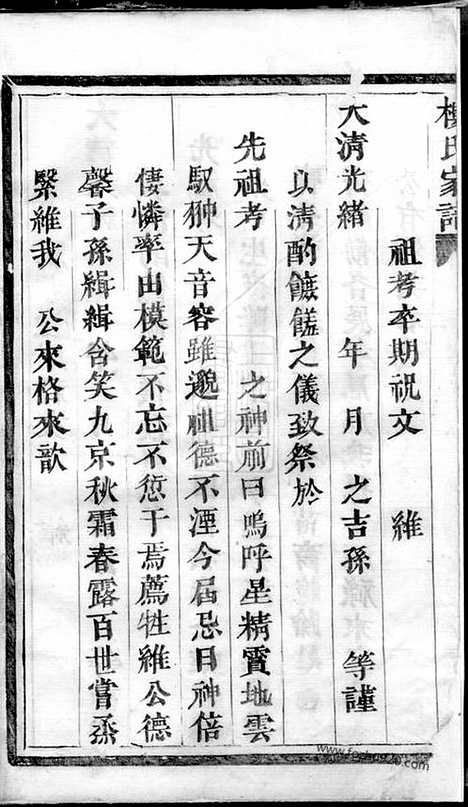 氏家譜
祖考卒期祝文 維
大清光緒 年 月 之吉孫 等謹
以清酌饈饈之儀致祭於
先祖考 之神前曰嗚呼星精賁地雲
馭翀天音容雖邈祖德不湮今屆忌日神倍
悽憐率由模範不忘不愆于焉薦牲維公德
馨子孫緝緝含笑九京秋霜春露百世嘗烝
繄維我 公來格來歆